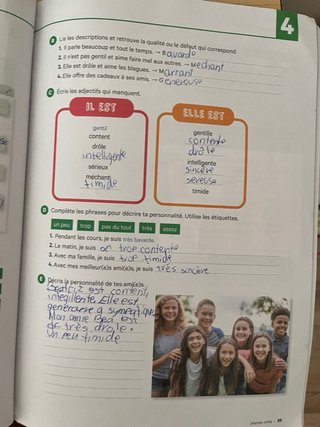 4
B Lis les descriptions et retrouve la qualité ou le défaut qui correspond.
1. Il parle beaucoup et tout le temps. → Bavarde
2. Il n'est pas gentil et aime faire mal aux autres. → Mechant
3. Elle est drôle et aime les blagues. → Marrant
4. Elle offre des cadeaux à ses amis. → Genereuse
C Écris les adjectifs qui manquent.
IL EST
gentil
content
drôle
intelligente
sérieux
méchant
timide
ELLE EST
gentille
contente
drôle
intelligente
sincère
sereuse
timide
D Complète les phrases pour décrire ta personnalité. Utilise les étiquettes.
un peu trop pas du tout très assez
1. Pendant les cours, je suis très bavarde.
2. Le matin, je suis trop contente
3. Avec ma famille, je suis trop timide
4. Avec mes meilleur(e)s ami(e)s, je suis très sincère
E Décris la personnalité de tes ami(e)s.
est content,
Elle est
generouse
Mon amie Bea est
très drole.
un peu timide